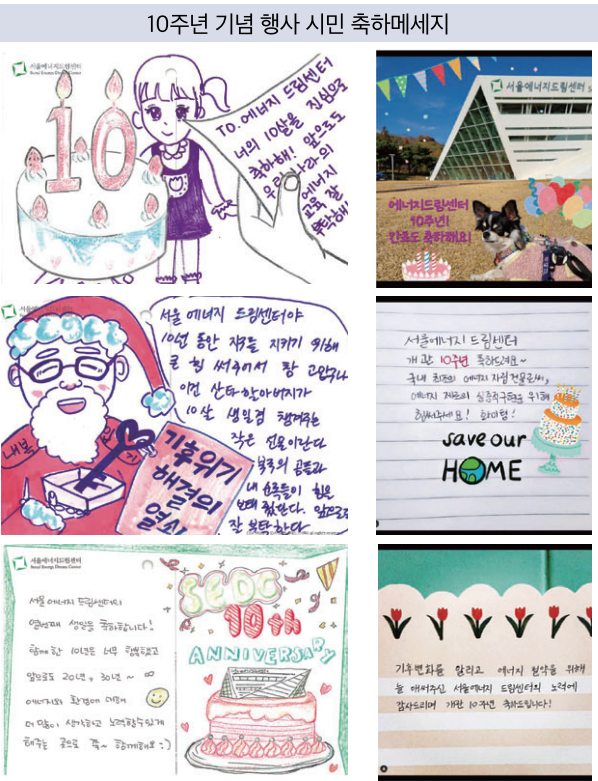 10주년 기념 행사 시민 축하메세지
서울에너지드림센터
Seoul Energy Dream Center
10
TO. 에너지 드림센터
너의 10살을 진심으로
축하해! 앞으로도
우리나라의
에너지
교육 잘
부탁해!
서울에너지드림센터
에너지드림센터
10주년!
축하해요!
서울에너지드림센터
서울 에너지 드림센터야
10년 동안 지구를 지키기 위해
큰 힘 써주어서 참 고맙구나
이건 산타할아버지가
10살 생일겸 챙겨주는
작은 선물이란다
북극의 곰들과
내 순록들이 힘을
보태 줬단다. 앞으로도
잘 부탁한다.
내복
기후위기
해결의
열쇠
서울에너지드림센터
개관 10주년 축하드려요~
국내 최초의 에너지 자립 건물로써,
에너지 제로의 실증적구현을 위해
힘써주세요! 화이팅!
save our
HOME
서울에너지드림센터
Seoul Energy Dream Center
서울 에너지 드림센터의
열번째 생일을 축하합니다!
함께한 10년은 너무 행복했고
앞으로도 20년, 30년 ~ ∞
에너지와 환경에 대해
더 많이 생각하고 노력할수있게
해주는 곳으로 쭉~ 함께해요 :)
SEDC
10th
ANNIVERSARY
기후변화를 알리고 에너지 절약을 위해
늘 애써주신 서울에너지 드림센터의 노력에
감사드리며 개관 10주년 축하드립니다!